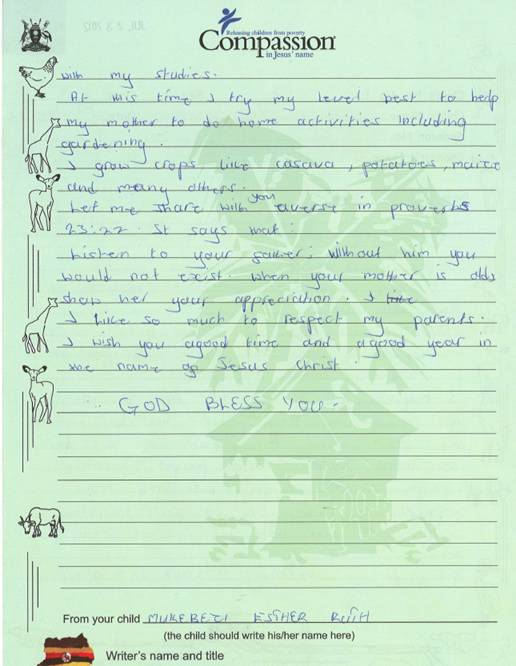 JUL 23 2012
Releasing children from poverty
Compassion
in Jesus' name
with my studies.
At this time I try my level best to help
my mother to do home activities including
gardening.
I grow crops like casava, potatoes, maize
and many others.
Let me share with you averse in proverbs
23:22. It says that:
Listen to your father; without him you
would not exist. when your mother is old,
show her your appreciation. I like
I like so much to respect my parents.
I wish you agood time and agood year in
the name of Jesus Christ.
GOD BLESS YOU.
From your child MUKEBEZI ESTHER RUTH
(the child should write his/her name here)
Writer's name and title